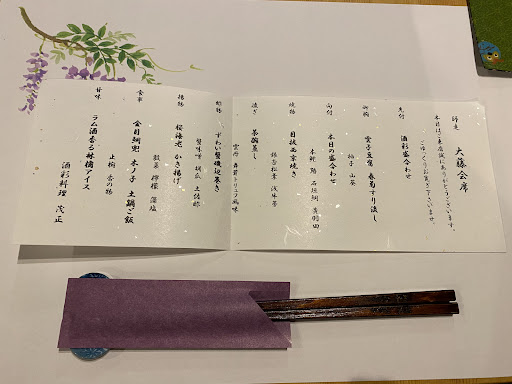 師走
大藤会席
本日はご来店誠にありがとうございます。
ごゆっくりお寛ぎ下さいませ。
先付
酒彩盛合わせ
御椀
雲子豆腐 春菊すり流し
柚子 山葵
向付
本日の盛合わせ
本鮪 鰆 石垣鯛 黄羽田
焼物
目抜西京焼き
銀杏松葉 浅味茶
凌ぎ
茶碗蒸し
雲丹 黒トリュフ風味
ずわい蟹磯辺巻き
蟹味噌 胡瓜 土佐酢
揚物
桜海老 かき揚げ
檸檬 藻塩
食事
金目鯛兜 木ノ子 土鍋ご飯
止椀 香の物
甘味
ラム酒香る林檎アイス
酒彩料理 茂正